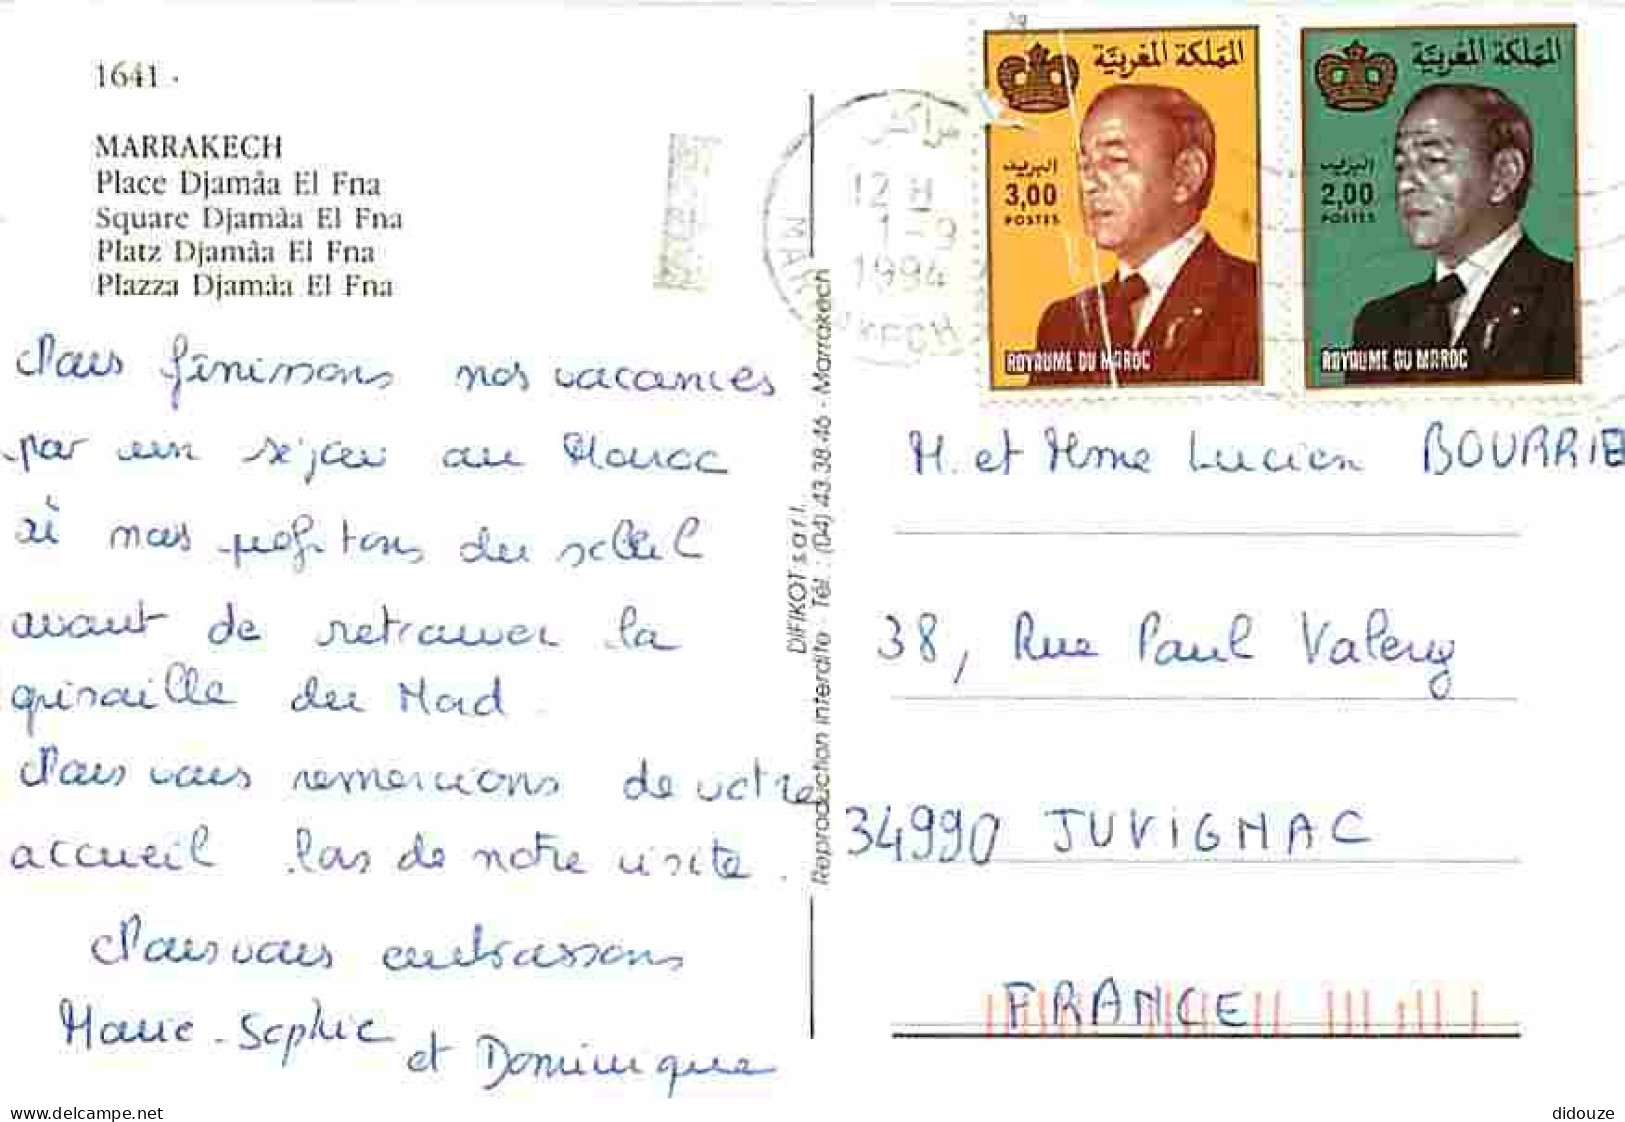 1641.
MARRAKECH
Place Djamâa El Fna
Square Djamâa El Fna
Platz Djamâa El Fna
Plazza Djamâa El Fna
Nous finissons nos vacances
par un séjour au Maroc
où nous profitons du soleil
avant de retrouver la
grisaille du Nord.
Nous vous remercions de votre
accueil lors de notre visite.
Nous vous embrassons
Marie-Sophie
et Dominique
DIFIKOT s.a.r.l.
Reproduction interdite - Tél. : (04) 43.38.46 - Marrakech
مراكش
12 H
1994
المملكة المغربية
البريد
3,00
POSTES
ROYAUME DU MAROC
المملكة المغربية
البريد
2,00
POSTES
ROYAUME DU MAROC
M. et Mme Lucien BOURRIE
38, Rue Paul Valery
34990 JUVIGNAC
FRANCE
delcampe.net
didouze